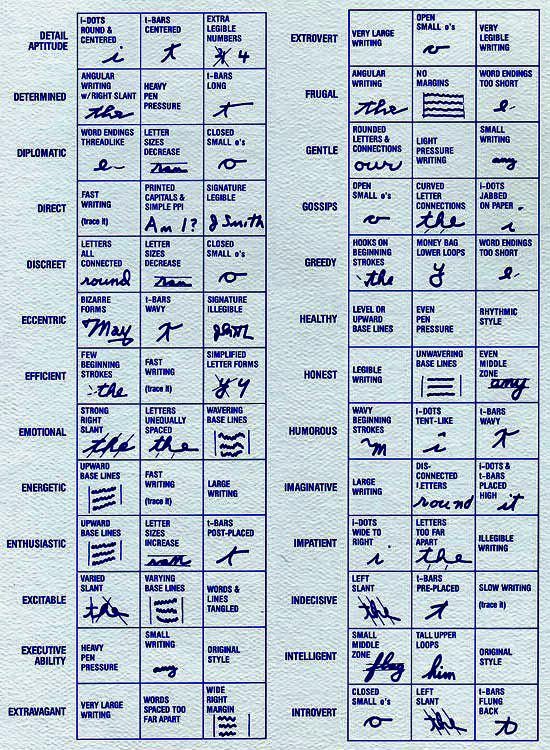 DETAIL
APTITUDE
I-DOTS
ROUND &
CENTERED
i
t-BARS
CENTERED
t
EXTRA
LEGIBLE
NUMBERS
4 4
DETERMINED
ANGULAR
WRITING
w/RIGHT SLANT
the
HEAVY
PEN
PRESSURE
t-BARS
LONG
t
DIPLOMATIC
WORD ENDINGS
THREADLIKE
e
LETTER
SIZES
DECREASE
ran
CLOSED
SMALL o's
o
DIRECT
FAST
WRITING
(trace it)
PRINTED
CAPITALS &
SIMPLE PPI
Am I?
SIGNATURE
LEGIBLE
J Smith
DISCREET
LETTERS
ALL
CONNECTED
round
LETTER
SIZES
DECREASE
ran
CLOSED
SMALL o's
o
ECCENTRIC
BIZARRE
FORMS
May
t-BARS
WAVY
t
SIGNATURE
ILLEGIBLE
EFFICIENT
FEW
BEGINNING
STROKES
the
FAST
WRITING
(trace it)
SIMPLIFIED
LETTER FORMS
y y
EMOTIONAL
STRONG
RIGHT
SLANT
the
LETTERS
UNEQUALLY
SPACED
the
WAVERING
BASE LINES
ENERGETIC
UPWARD
BASE LINES
FAST
WRITING
(trace it)
LARGE
WRITING
ENTHUSIASTIC
UPWARD
BASE LINES
LETTER
SIZES
INCREASE
ran
t-BARS
POST-PLACED
t
EXCITABLE
VARIED
SLANT
the
VARYING
BASE LINES
WORDS &
LINES
TANGLED
EXECUTIVE
ABILITY
HEAVY
PEN
PRESSURE
SMALL
WRITING
any
ORIGINAL
STYLE
EXTRAVAGANT
VERY LARGE
WRITING
WORDS
SPACED TOO
FAR APART
WIDE
RIGHT
MARGIN
EXTROVERT
VERY LARGE
WRITING
OPEN
SMALL o's
o
VERY
LEGIBLE
WRITING
FRUGAL
ANGULAR
WRITING
the
NO
MARGINS
WORD ENDINGS
TOO SHORT
e
GENTLE
ROUNDED
LETTERS &
CONNECTIONS
our
LIGHT
PRESSURE
WRITING
SMALL
WRITING
any
GOSSIPS
OPEN
SMALL o's
o
CURVED
LETTER
CONNECTIONS
the
I-DOTS
JABBED
ON PAPER
i
GREEDY
HOOKS ON
BEGINNING
STROKES
the
MONEY BAG
LOWER LOOPS
y
WORD ENDINGS
TOO SHORT
e
HEALTHY
LEVEL OR
UPWARD
BASE LINES
EVEN
PEN
PRESSURE
RHYTHMIC
STYLE
HONEST
LEGIBLE
WRITING
UNWAVERING
BASE LINES
EVEN
MIDDLE
ZONE
any
HUMOROUS
WAVY
BEGINNING
STROKES
m
I-DOTS
TENT-LIKE
i
t-BARS
WAVY
t
IMAGINATIVE
LARGE
WRITING
DIS-
CONNECTED
LETTERS
round
I-DOTS &
t-BARS
PLACED
HIGH
it
IMPATIENT
I-DOTS
WIDE TO
RIGHT
i
LETTERS
TOO FAR
APART
the
ILLEGIBLE
WRITING
INDECISIVE
LEFT
SLANT
the
t-BARS
PRE-PLACED
t
SLOW WRITING
(trace it)
INTELLIGENT
SMALL
MIDDLE
ZONE
flag
TALL UPPER
LOOPS
him
ORIGINAL
STYLE
INTROVERT
CLOSED
SMALL o's
o
LEFT
SLANT
the
t-BARS
FLUNG
BACK
t